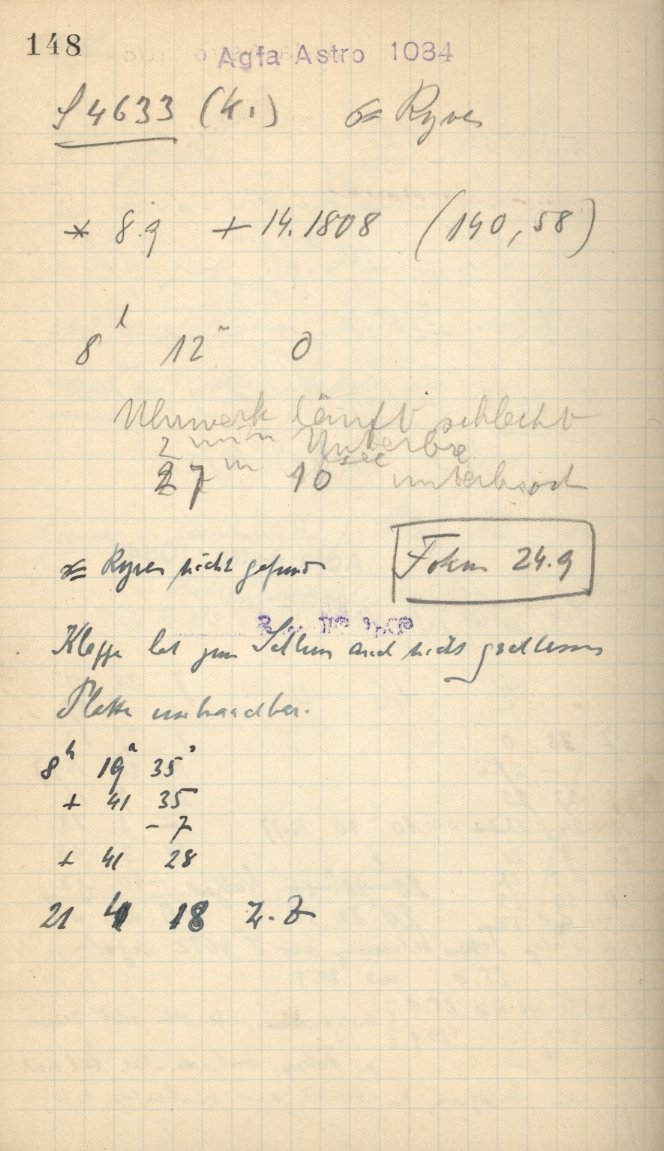 148 Agfa Astro 1084
S 4633 (K.) Ryves
* 8.9 +14.1808 (140,58)
8h 12m 0
Uhrwerk läuft schlecht
2 min Unterbre
27 m 10 sec unterbroch
Ryves nicht gefund
Fokus 24.9
Klappe hat zum Schluss auch nicht geschlossen
Platte unbrauchbar.
8h 19m 35s
+ 41 35
- 7
+ 41 28
21 18 Z.Z